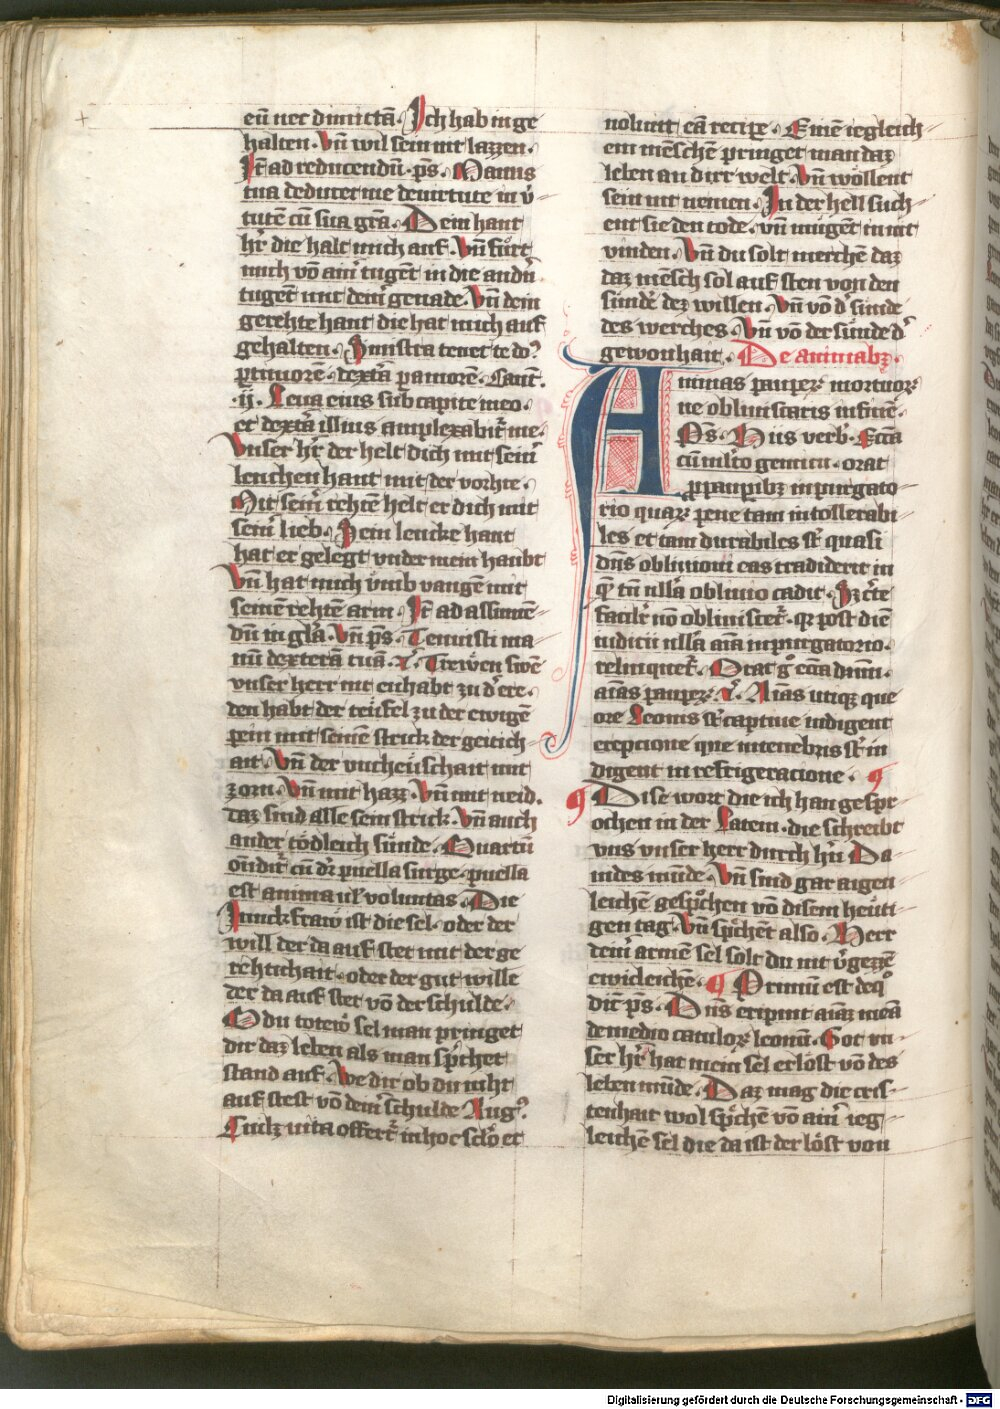 eū nec dimittā. Ich hab in ge
halten. Vn̄ wil sein nit lazzen.
It̄ ad reducendū. p̄s. Manus
tua deducet me de virtute in v̓
tutē cū sua gr̄a. Dein hant
hr̓ die halt mich auf. Vn̄ fürt
mich vō ain̓ tugent in die andn̓
tugēt mit dein̓ genade. Vn̄ dein
gerehte hant die hat mich auf
gehalten. Sinistra tenet te do?
p timorē. dextā p amorē. Cant̄.
.ij. Leua eius sub capite meo.
et dextā illius amplexabit̓ me.
Vnser hr̓ der helt dich mit sein̓
lenchen hant mit der vorhte.
Mit sein̓ rehtē helt er dich mit
sein̓ lieb. Sein lencke hant
hat er gelegt vnder mein haubt
Vn̄ hat mich v̈mb vangē mit
seinē rehtē arm. It̄ ad assumē
dū in gl̄a. Vn̄ p̄s. Tenuisti ma
nū dexterā tuā. Trewen swē
vnser herr nit enhabt zu d̓ ere.
den habt der teüfel zu der ewigē
pein mit seinē strick der geitich
ait. Vn̄ der vncheüschait mit
zorn. Vn̄ mit hazz. Vn̄ mit neid.
daz sind alle sein strick. Vn̄ auch
ander tödleich sünde. Quartū
cū dr̄ puella surge. puella
est anima ul̓ voluntas. Die
Junckfraw ist die sel. oder der
will der da auf stet mit der ge
rehtichait. oder der gut wille
der da auf stet vō der schulde.
O du totew sel man pringet
dir daz leben als man sp̓chet
stand auf. We dir ob du niht
auf stest vō dein̓ schulde Aug?
Cuilz uita offert̓ in hoc sc̄lo et
nolunt eā recipe. Einē iegleich
em menschē pringet man daz
leben an dirr welt. Vn̄ wöllent
sein nit nemen. In der hell such
ent sie den tode. vn̄ mügēt in nit
vinden. Vn̄ du solt merchē daz
daz mēsch sol auf sten von den
sündē dez willen. Vn̄ vō d̓ sünde
des werches. Vn̄ vō der sünde d̓
gewonhait. De animabꝫ.
Animas pauperꝝ mortuoꝝ
ne obliuiscaris in finē.
P̄s. Hiis verb̓. Eccīa
cū ml̓to gemitu. orat
p pauperibꝫ in purgato
rio quaꝝ pene tam intollerabi
les et tam durabiles st̓ quasi
dn̄s obliuioni eas tradiderit in
q̄ tn̄ ulla obliuio cadit. Iꝫ c̓te
facilit̓ nō obliuiscet̓. qꝛ post diē
iudicii ulla aīa in purgatorio.
relinquet̓. Orat g̓ eccīa dnm̄.
aīas pauperꝝ. Aīas utiqꝫ que
ore Leonis st̓ captiue indigent
ereptione que in tenebris st̓ in
digent in refrigeracione. ¶
¶ Dise wort die ich han gespr
ochen in der Latein. die schreibt
vns vnser herr durch hr̓n Da
uides mūde. Vn̄ sind gar aigen
leichē gesp̓chen vō disem heüti
gen tag. Vn̄ sp̓chent also. Herr
dein̓ armē sel solt du nit v̓gezzē
ewicleichē. ¶ Primū est de q̊
dic̄ p̄s. Dn̄s eripuit aīaꝫ meā
de medio catuloꝝ leonū. Got vn
ser hr̓ hat mein sel erlöst vō des
leben mūde. Daz mag die cris
tenhait wol sp̓chē vō ain̓ ieg
leichē sel die da ist der löst von
Digitalisierung gefördert durch die Deutsche Forschungsgemeinschaft - DFG